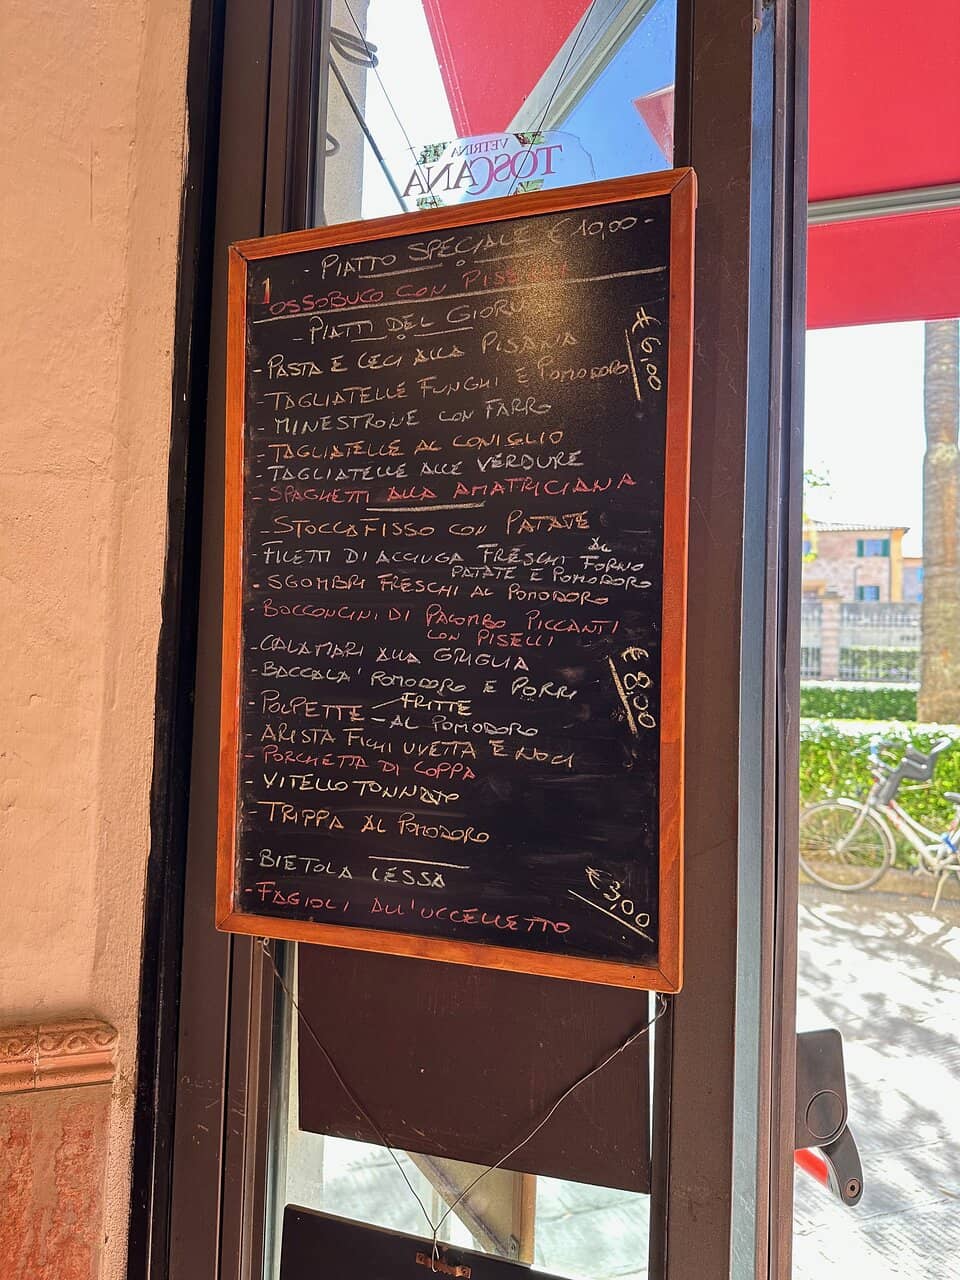 VETRINA
TOSCANA
- PIATTO SPECIALE € 10,00 -
OSSOBUCO CON PISELLI
- PIATTI DEL GIORNO
- PASTA E CECI ALLA PISANA
- TAGLIATELLE FUNGHI E POMODORO € 6,00
- MINESTRONE CON FARRO
- TAGLIATELLE AL CONIGLIO
- TAGLIATELLE ALLE VERDURE
- SPAGHETTI ALLA AMATRICIANA
- STOCCAFISSO CON PATATE
- FILETTI DI ACCIUGA FRESCHI AL FORNO
PATATE E POMODORO
- SGOMBRI FRESCHI AL POMODORO
- BOCCONCINI DI PALOMBO PICCANTI
CON PISELLI
- CALAMARI ALLA GRIGLIA
- BACCALA' POMODORO E PORRI € 8,00
- POLPETTE - FRITTE
- AL POMODORO
- ARISTA FICHI UVETTA E NOCI
- PORCHETTA DI COPPA
- VITELLO TONNATO
- TRIPPA AL POMODORO
- BIETOLA LESSA € 3,00
- FAGIOLI ALL'UCCELLETTO